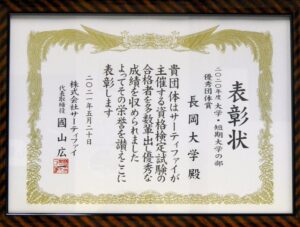 表彰状
二〇二〇年度 大学・短期大学の部
優秀団体賞
長岡大学 殿
貴団体はサーティファイが
主催する資格検定試験の
合格者を多数輩出し優秀な
成績を収められました
よってその栄誉を讃えここに
表彰します
二〇二一年五月二十日
株式会社サーティファイ
代表取締役 國山広